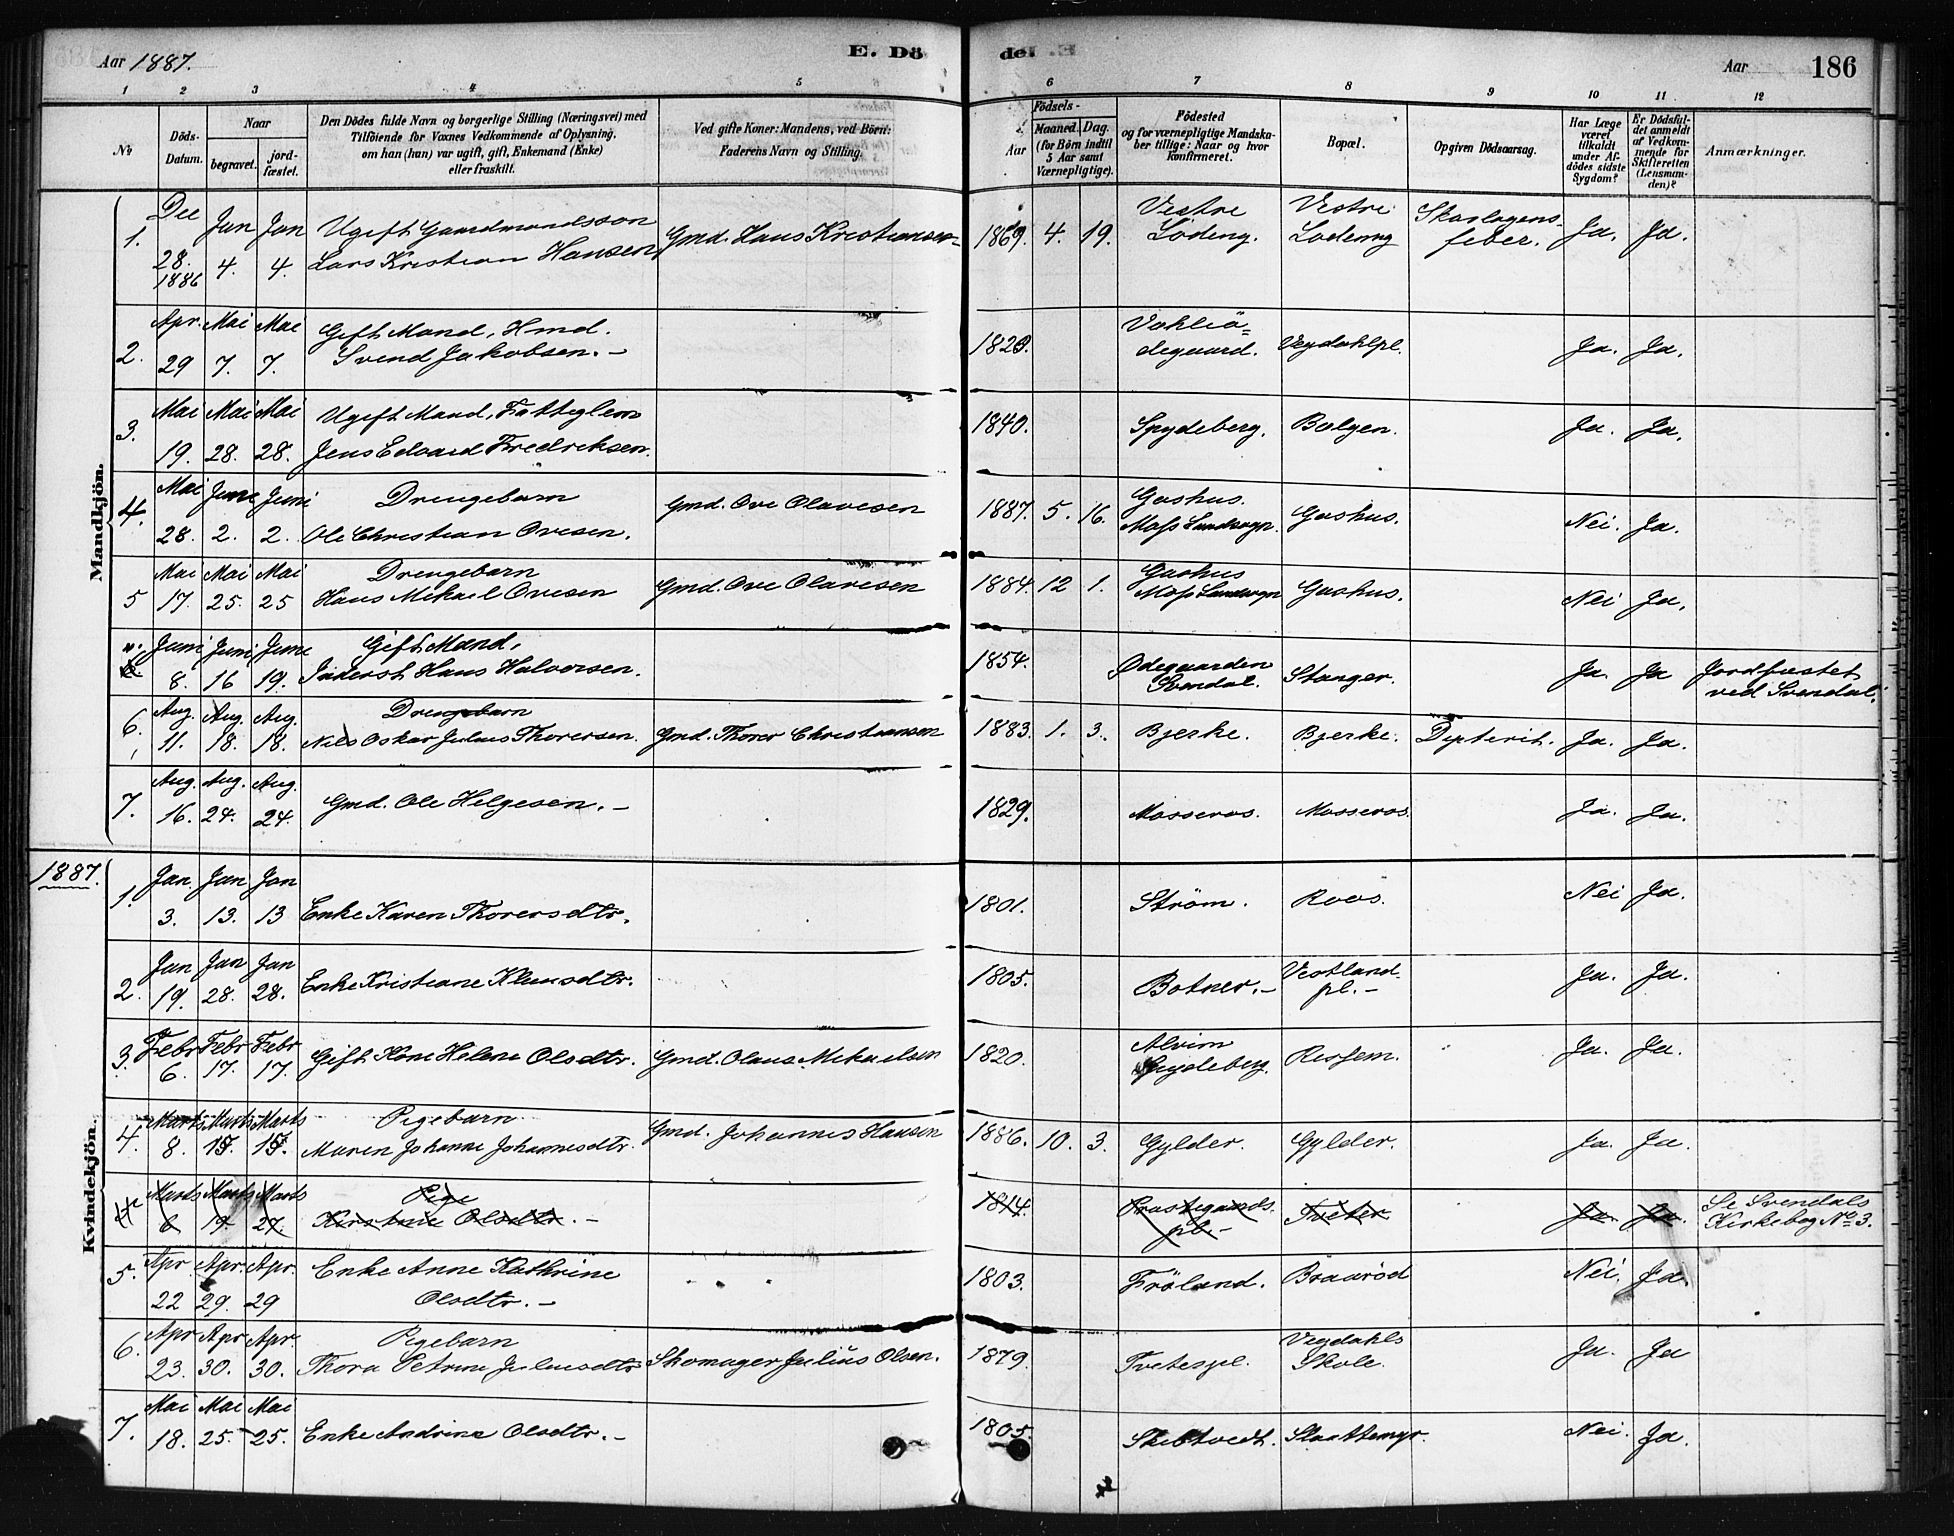 Aar 1887.
E. Dö
del
Aar
186
1 2 3 4 5 6 7 8 9 10 11 12
№
Döds-
Datum.
Naar
begravet.
jord-
fæstet.
Den Dödes fulde Navn og borgerlige Stilling (Næringsvei) med
Tilföiende for Voxnes Vedkommende af Oplysning,
om han (hun) var ugift, gift, Enkemand (Enke)
eller fraskilt.
Ved gifte Koner: Mandens, ved Börn:
Faderens Navn og Stilling.
Födsels-
Aar
Maaned. Dag.
(for Börn indtil
5 Aar samt
Værnepligtige).
Födested
og for værnepligtige Mandska-
ber tillige: Naar og hvor
konfirmeret.
Bopæl.
Opgiven Dödsaarsag.
Har Læge
været
tilkaldt
under Af-
dödes sidste
Sygdom?
Er Dödsfal-
det anmeldt
af Vedkom-
mende for
Skifteretten
(Lensman-
den)?
Anmærkninger.
Mandkjön.
1. Dec 28. 1886 Jan 4. Jan 4. Ugift Gaardmandsson
Lars Kristian Hansen Gmd. Hans Kristiansen 1869. 4. 19. Vestre
Lödeng. Vestre
Lödeng Skarlagens-
feber. Ja. Ja.
2. Apr. 29 Mai 7. Mai 7. Gift Mand, Hmd.
Svend Jakobsen. 1820. degaard. Vegdahlpl. Ja. Ja.
3. Mai 19. Mai 28. Mai 28. Ugift Mand, Fattiglem
Jens Edvard Fredriksen. 1840. Spydeberg. Bølgen. Ja. Ja.
4. Mai 28. Juni 2. Juni 2. Drengebarn
Ole Christian Ovesen. Gmd. Ove Olavesen 1887. 5. 16. Gashus.
Moss Landsogn. Gashus. Nei. Ja.
5 Mai 17. Mai 25. Mai 25 Drengebarn
Hans Mikael Ovesen Gmd. Ove Olavesen 1884. 12 1. Gashus
Moss Landsogn Gashus. Nei Ja.
Juni 8. Juni 16 Juni 19. Gift Mand,
Inderst Hans Halvorsen. 1854. Ødegaarden
Svendal. Stanger. Ja. Ja Jordfæstet
ved Svendal.
6. Aug. 11. Aug. 18. Aug. 18. Drengebarn
Nils Oskar Julius Thoresen. Gmd. Thorer Christiansen 1883. 1. 3. Bjerke. Bjerke. Dipterit. Ja. Ja.
7. Aug. 16. Aug. 24. Aug. 24. Gmd. Ole Helgesen. 1829. Mosseros. Mosseros. Ja. Ja.
1887.
Kvindekjön.
1. Jan. 3. Jan 13. Jan 13 Enke Karen Thorersdtr. 1801. Ström. Roos. Nei Ja.
2. Jan 19. Jan 28. Jan 28. Enke Kristiane Klausdtr. 1805. Botner. Vestland
pl. Ja. Ja.
3. Febr 6. Febr 17. Febr 17. Gift Kone Helene Olsdtr. Gmd. Olaus Mikaelsen 1820. Alvim
Spydeberg. Rissem. Ja. Ja.
4. Marts 8. Marts 15. Marts 15. Pigebarn
Maren Johanne Johannesdtr. Gmd. Johannes Hansen 1886. 10. 3. Gylder. Gylder. Ja. Ja.
Marts 6 Marts 19 Marts 27. Pige
Kirstine Olsdtr. 1814. Præstegaards
pl. Tveter Ja. Ja. Se Svendals
Kirkebog No 3.
5. Apr 22 Apr. 29. Apr. 29 Enke Anne Kathrine
Olsdtr. 1803. Fröland. Braaröd Nei. Ja.
6. Apr 23. Apr 30. Apr. 30. Pigebarn
Thora Petrine Juliusdtr. Skomager Julius Olsen. 1879. Tvetespl. Vegdahls
Skole. Ja. Ja
7. Mai 18. Mai 25. Mai 25. Enke Andrine Olsdtr. 1805. Skibtvedt. Slaattemyr. Nei. Ja.